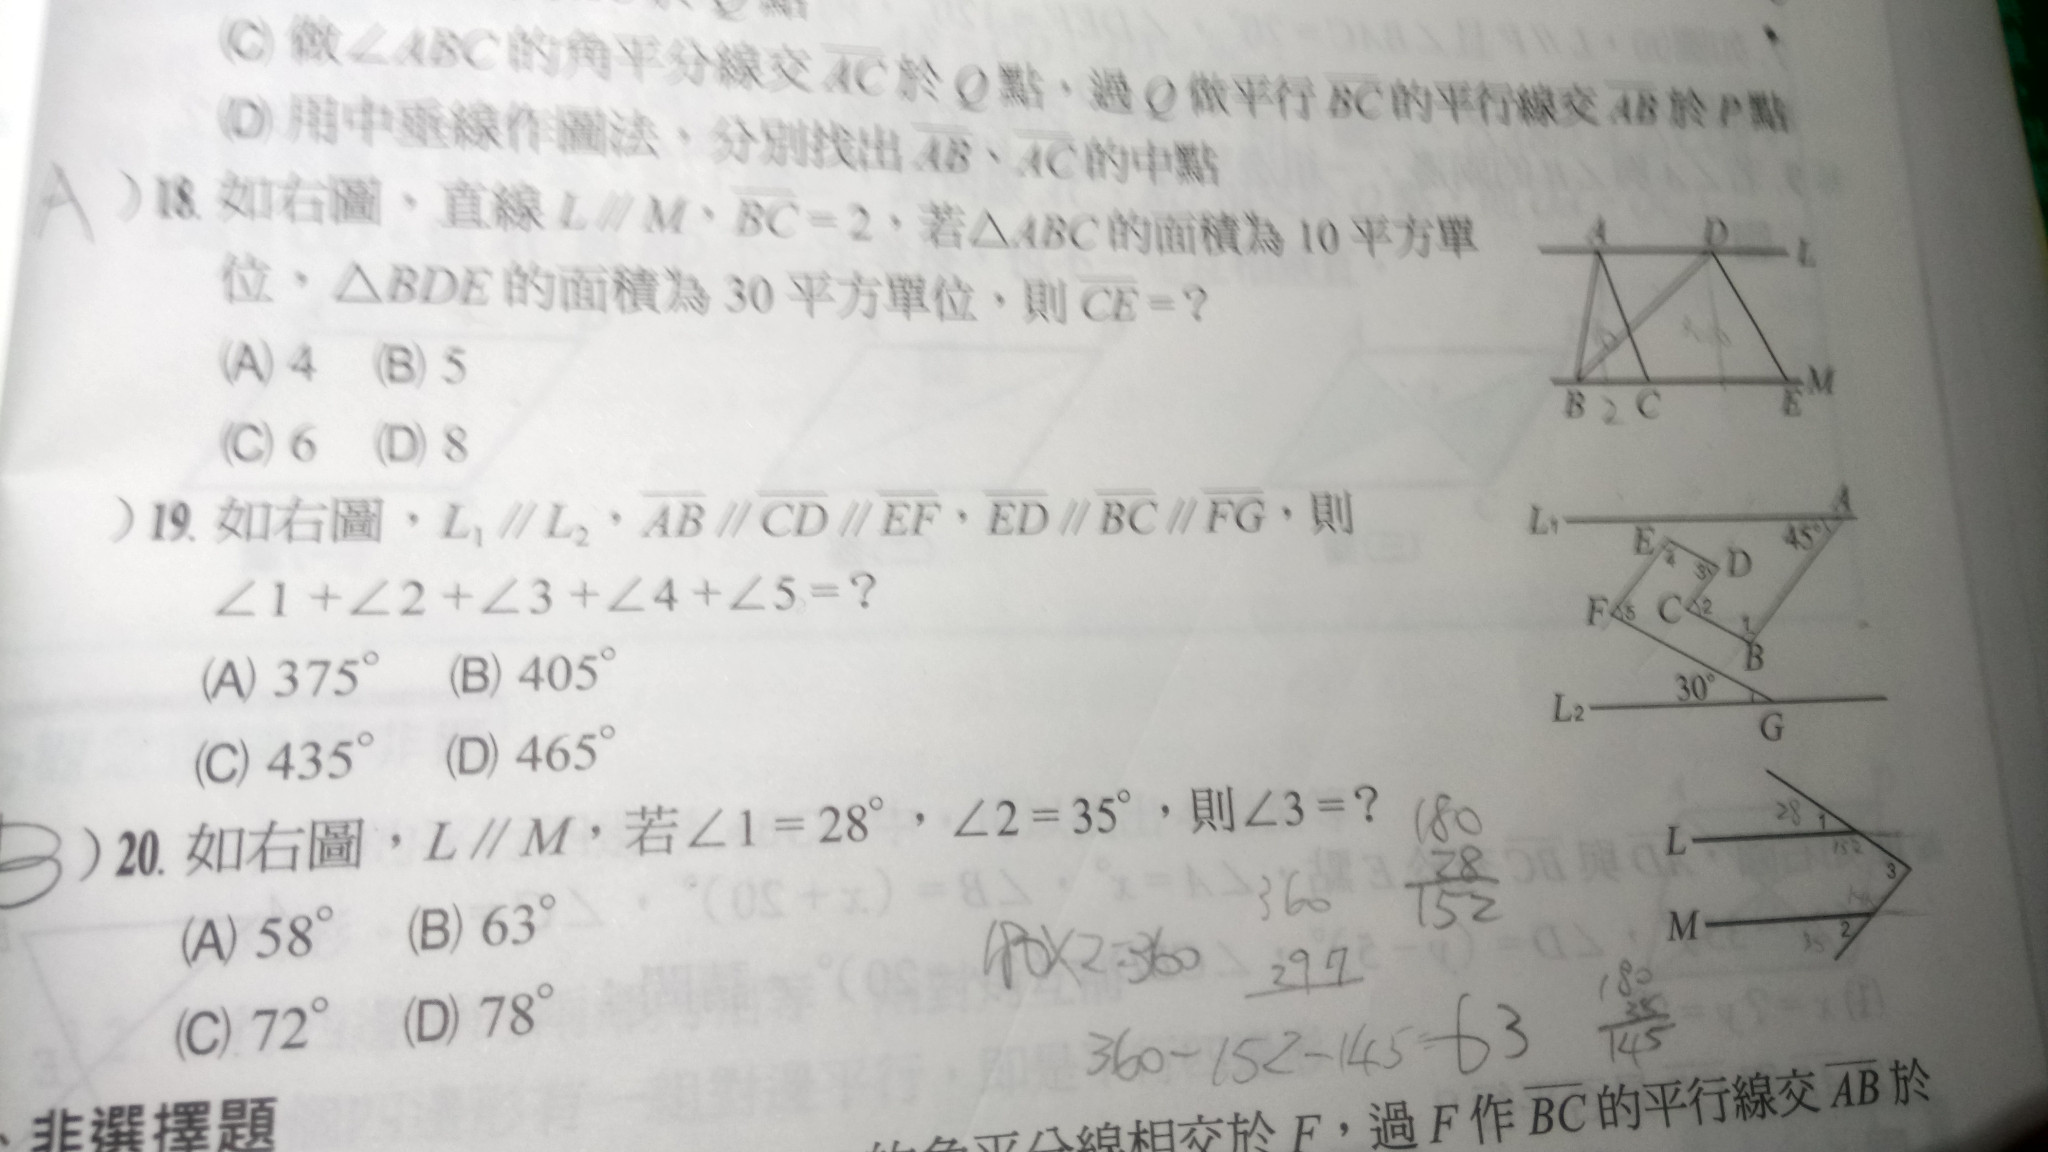 (C) 做∠ABC的角平分線交AC於Q點，過Q做平行BC的平行線交AB於P點
(D) 用中垂線作圖法，分別找出AB、AC的中點
A )18. 如右圖，直線L∥M、BC=2，若△ABC的面積為10平方單
位，△BDE的面積為30平方單位，則CE=？
(A) 4 (B) 5
(C) 6 (D) 8
A D L
B 2 C E M
)19. 如右圖，L₁∥L₂，AB∥CD∥EF，ED∥BC∥FG，則
∠1+∠2+∠3+∠4+∠5=？
(A) 375° (B) 405°
(C) 435° (D) 465°
L₁ A
E 4 3 D 45°
F 5 C 2 1
B
30°
L₂ G
B )20. 如右圖，L∥M，若∠1=28°，∠2=35°，則∠3=？
(A) 58° (B) 63°
(C) 72° (D) 78°
28 1
L 152
3
M
2 35
180
28
152
360
180×2=360
297
180
35
145
360-152-145=63
、非選擇題
的角平分線相交於F，過F作BC的平行線交AB於